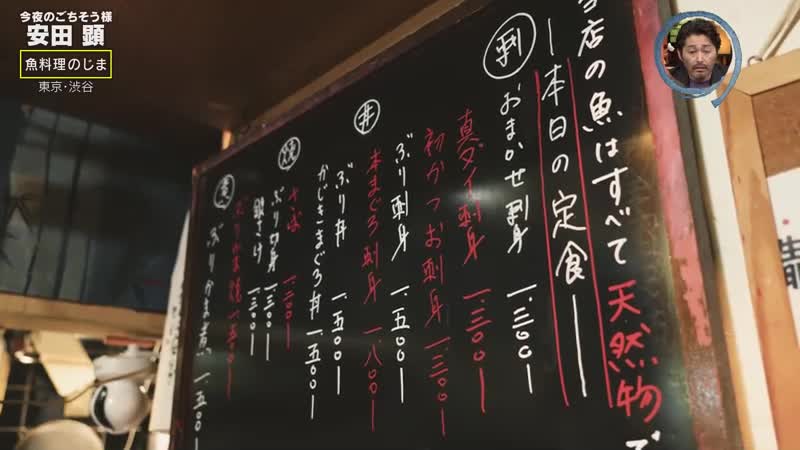 今夜のごちそう様
安田 顕
魚料理のじま
東京・渋谷
当店の魚はすべて天然物で
本日の定食
刺
おまかせ刺身 一、三〇〇
真ダイ刺身 一、三〇〇
初かつお刺身 一、三〇〇
ぶり刺身 一、五〇〇
本まぐろ刺身 一、八〇〇
丼
ぶり丼 一、五〇〇
かじきまぐろ丼 一、五〇〇
焼
さば 一、二〇〇
ぶり切身 一、三〇〇
銀さけ 一、三〇〇
ぶりかま焼 一、五〇〇
煮
ぶりかま煮 一、五〇